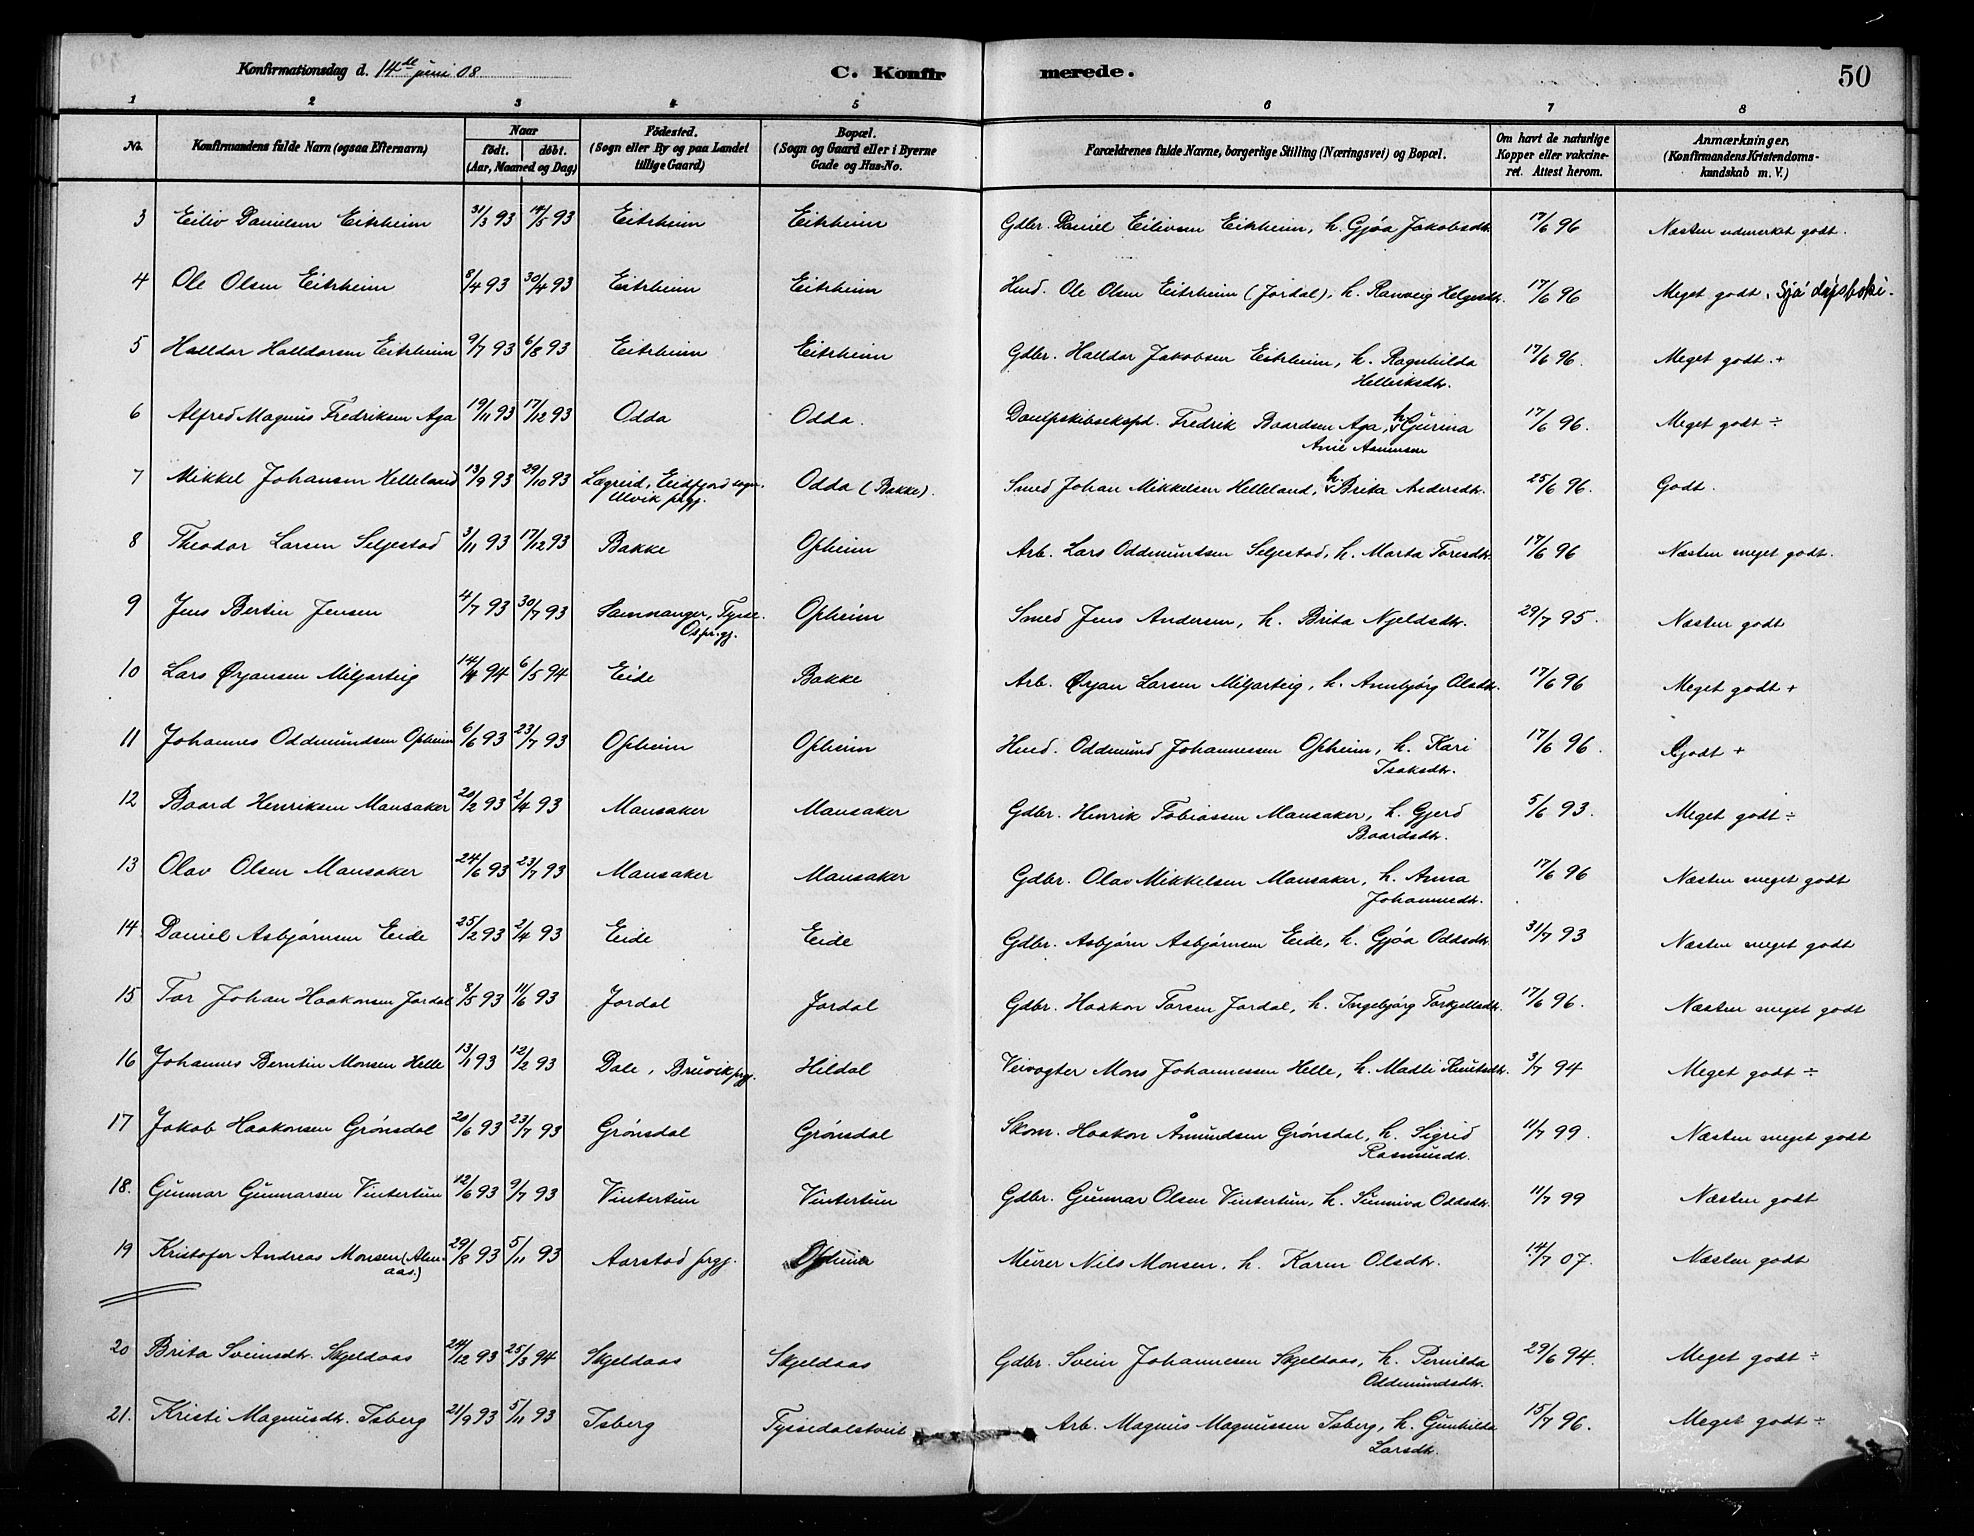 Konfirmationsdag d. 14de juni 08
C. Konfirmerede.
50
1 2 3 4 5 6 7 8
No.
Konfirmandens fulde Navn (ogsaa Efternavn)
Naar
födt. döbt.
(Aar, Maaned og Dag)
Födested.
(Sogn eller By og paa Landet
tillige Gaard)
Bopæl.
(Sogn og Gaard eller i Byerne
Gade og Hus-No.
Forældrenes fulde Navne, borgerlige Stilling (Næringsvei) og Bopæl.
Om havt de naturlige
Kopper eller vakcine-
ret. Attest herom.
Anmærkninger,
(Konfirmandens Kristendoms-
kundskab m. V.)
3 Eiliv Danielsen Eitrheim 31/3 93 14/5 93 Eitrheim Eitrheim Gdbr. Daniel Eilivsen Eitrheim, h. Gjøa Jakobsdtr. 17/6 96 Næsten udmerket godt.
4 Ole Olsen Eitrheim 8/4 93 30/4 93 Eitrheim Eitrheim Husd. Ole Olsen Eitrheim (Jordal), h. Ranveig Helgesdtr. 17/6 96 Meget godt. Sjå dåpsboki.
5 Halldor Halldorsen Eitrheim 9/7 93 6/8 93 Eitrheim Eitrheim Gdbr. Halldor Jakobsen Eitrheim, h. Ragnhilda
Helleiksdtr. 17/6 96. Meget godt. +
6 Alfred Magnus Fredriksen Aga 19/11 93 17/12 93 Odda Odda. Dampskibsekspd. Fredrik Baardsen Aga, h. Gurina
Amie Asmussen 17/6 96. Meget godt ÷
7 Mikkel Johansen Helleland 13/9 93 29/10 93 Lægreid, Eidfjord sogn.
Ulvik prgj. Odda (Bakke). Smed Johan Mikkelsen Helleland, h. Brita Andersdtr. 25/6 96. Godt.
8 Theodor Larsen Seljestad 3/11 93 17/12 93 Bakke Opheim Arb. Lars Oddmundsen Seljestad, h. Marta Toresdtr. 17/6 96 Næsten meget godt.
9 Jens Bertin Jensen 4/7 93 30/7 93 Samnanger, Tysse
Os pr.gj. Opheim Smed Jens Andersen, h. Brita Njeldsdtr. 29/7 95. Næsten godt
10 Lars Ørjansen Miljarteig 14/4 94 6/5 94 Eide Bakke Arb. Ørjan Larsen Miljarteig, h. Annbjørg Olsdtr. 17/6 96 Meget godt +
11 Johannes Oddmundsen Opheim 6/6 93 23/7 93 Opheim Opheim Husd. Oddmund Johannessen Opheim, h. Kari
Isaksdtr. 17/6 96. Godt +
12 Baard Henriksen Mansaker 20/2 93 2/4 93 Mansaker Mansaker Gdbr. Henrik Tobiassen Mansaker, h. Gjerd
Baardsdtr. 5/6 93. Meget godt ÷
13 Olav Olsen Mansaker 24/6 93 23/7 93 Mansaker Mansaker Gdbr. Olav Mikkelsen Mansaker, h. Anna
Johannesdtr. 17/6 96 Næsten meget godt
14 Daniel Asbjørnsen Eide 25/2 93 2/4 93 Eide Eide Gdbr. Asbjørn Asbjørnsen Eide, h. Gjøa Oddsdtr. 31/7 93 Næsten meget godt
15 Tor Johan Haakonsen Jordal 8/5 93 11/6 93 Jordal Jordal Gdbr. Haakon Torsen Jordal, h. Ingebjørg Torkjellsdtr. 17/6 96. Næsten meget godt
16 Johannes Berntin Monsen Helle 13/1 93 12/2 93 Dale, Bruvik prgj. Hildal Veivogter Mons Johannessen Helle, h. Madli Knutsdtr. 3/7 94 Meget godt ÷
17 Jakob Haakonsen Grønsdal 20/6 93 23/7 93 Grønsdal Grønsdal Skom. Haakon Åmundsen Grønsdal, h. Sigrid
Rasmusdtr. 11/7 99. Næsten meget godt
18. Gunnar Gunnarsen Vintertun 12/6 93 9/7 93 Vintertun Vintertun Gdbr. Gunnar Olsen Vintertun, h. Sunniva Oddsdtr. 11/7 99 Næsten godt
19 Kristofer Andreas Monsen (Alen-
aas) 29/8 93 5/11 93 Aarstad prgj. Opheim Murer Nils Monsen, h. Karen Olsdtr. 14/7 07. Næsten godt
20 Brita Sveinsdtr. Skjeldaas 24/12 93 25/3 94 Skjeldaas Skjeldaas Gdbr. Svein Johannesen Skjeldaas, h. Pernilda
Oddmundsdtr. 29/6 94. Meget godt ÷
21. Kristi Magnusdtr. Isberg 21/9 93 5/11 93 Isberg Tyssedalstveit Arb. Magnus Magnussen Isberg, h. Gunhilda
Larsdtr. 15/7 96. Meget godt ÷